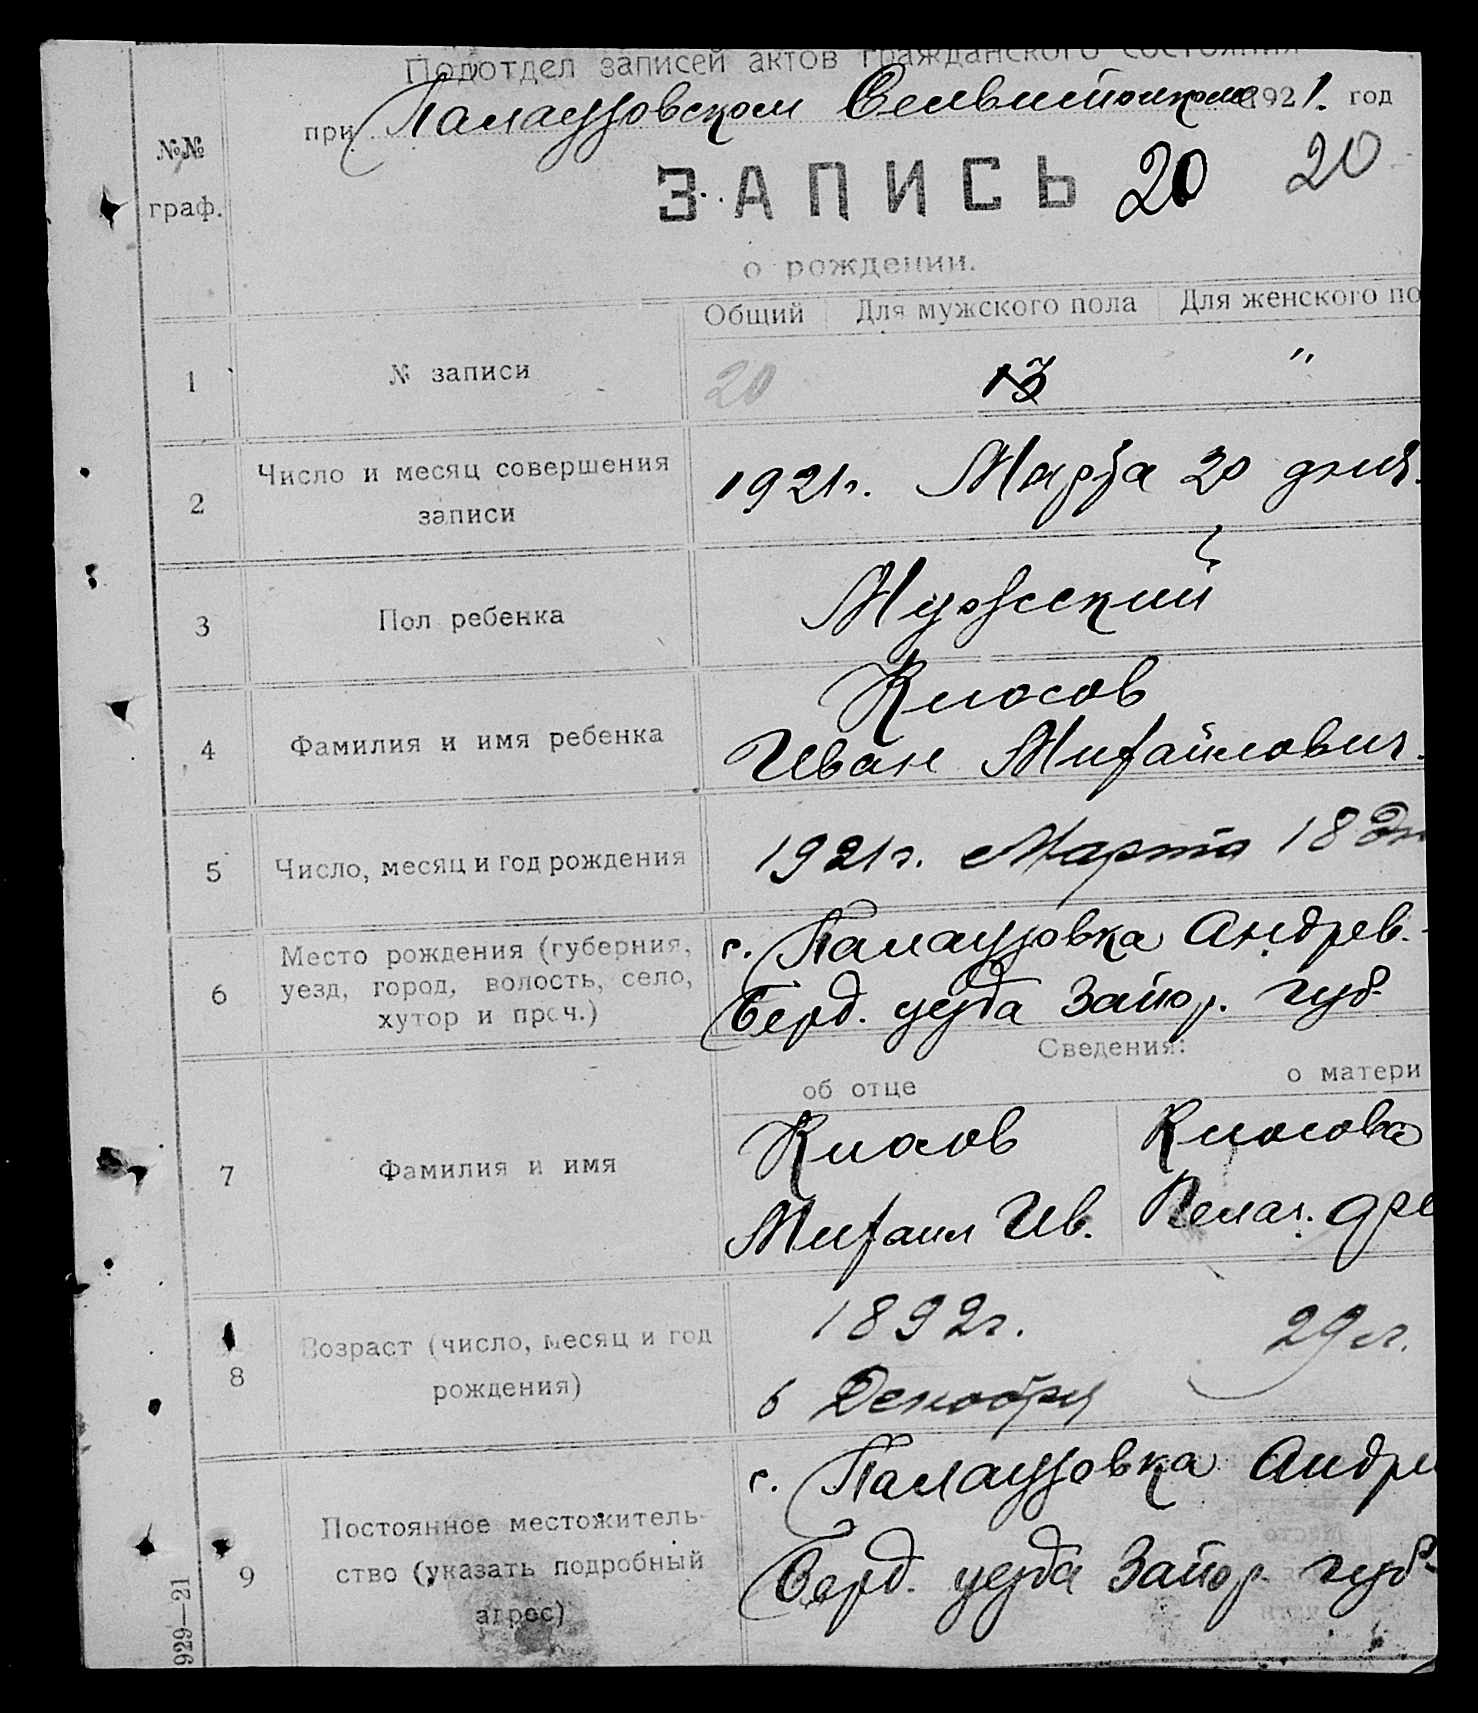 Подотдел записей актов гражданского состояния
при Палаузовском 1921. год
№№
граф.
ЗАПИСЬ 20 20
о рождении.
Общий Для мужского пола Для женского по
1 № записи 20 13 "
2 Число и месяц совершения
записи
1921г. Марта 20 дня.
3 Пол ребенка Мужеский
4 Фамилия и имя ребенка
Клюсов
Иван Михайлович.
5 Число, месяц и год рождения 1921г. Марта 18 дн
6 Место рождения (губерния,
уезд, город, волость, село,
хутор и проч.)
с. Палаузовка Андрев.
Берд. уезда Запор. губ.
Сведения:
об отце о матери
7 Фамилия и имя
Клюсов Клюсова
Михаил Ив. Пелаг.
8 Возраст (число, месяц и год
рождения)
1892г. 29 л.
6 Декабря
9 Постоянное местожитель-
ство (указать подробный
адрес)
с. Палаузовка Андре
Берд. уезда Запор. губ.
929—21